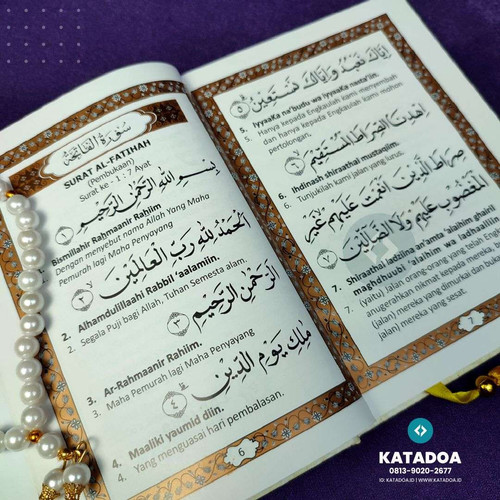 سورة الفاتحة
SURAT AL-FATIHAH
(Pembukaan)
Surat ke - 1 : 7 Ayat
بِسْمِ اللهِ الرَّحْمٰنِ الرَّحِيْمِ ١
1. Bismillahir Rahmaanir Rahiim
Dengan menyebut nama Allah Yang Maha
Pemurah lagi Maha Penyayang
اَلْحَمْدُ لِلّٰهِ رَبِّ الْعَالَمِيْنَ ٢
2. Alhamdulillaahi Rabbil 'aalamiin.
2. Segala Puji bagi Allah, Tuhan Semesta alam.
الرَّحْمٰنِ الرَّحِيْمِ ٣
3. Ar-Rahmaanir Rahiim.
3. Maha Pemurah lagi Maha Penyayang
مٰلِكِ يَوْمِ الدِّيْنِ ٤
4. Maaliki yaumid diin.
4. Yang menguasai hari pembalasan.
6
اِيَّاكَ نَعْبُدُ وَاِيَّاكَ نَسْتَعِيْنُ ٥
5. Iyyaaka na'budu wa iyyaaka nasta'iin.
5. Hanya kepada Engkaulah kami menyembah
dan hanya kepada Engkaulah kami mohon
pertolongan.
اِهْدِنَا الصِّرَاطَ الْمُسْتَقِيْمَ ٦
6. Ihdinash shiraathal mustaqiim.
6. Tunjukilah kami jalan yang lurus.
صِرَاطَ الَّذِيْنَ اَنْعَمْتَ عَلَيْهِمْ غَيْرِ
الْمَغْضُوْبِ عَلَيْهِمْ وَلَا الضَّالِّيْنَ ٧
7. Shiraathal ladziina an'amta 'alaihim ghairil
maghdhuubi 'alaihim wa ladhaalliin
7. (yaitu) Jalan orang-orang yang telah Engkau
anugerahkan nikmat kepada mereka
(jalan) mereka yang dimurkai dan bukan
(jalan) mereka yang sesat.
7
KATADOA
0813-9020-2677
IG: KATADOA.ID | WWW.KATADOA.ID